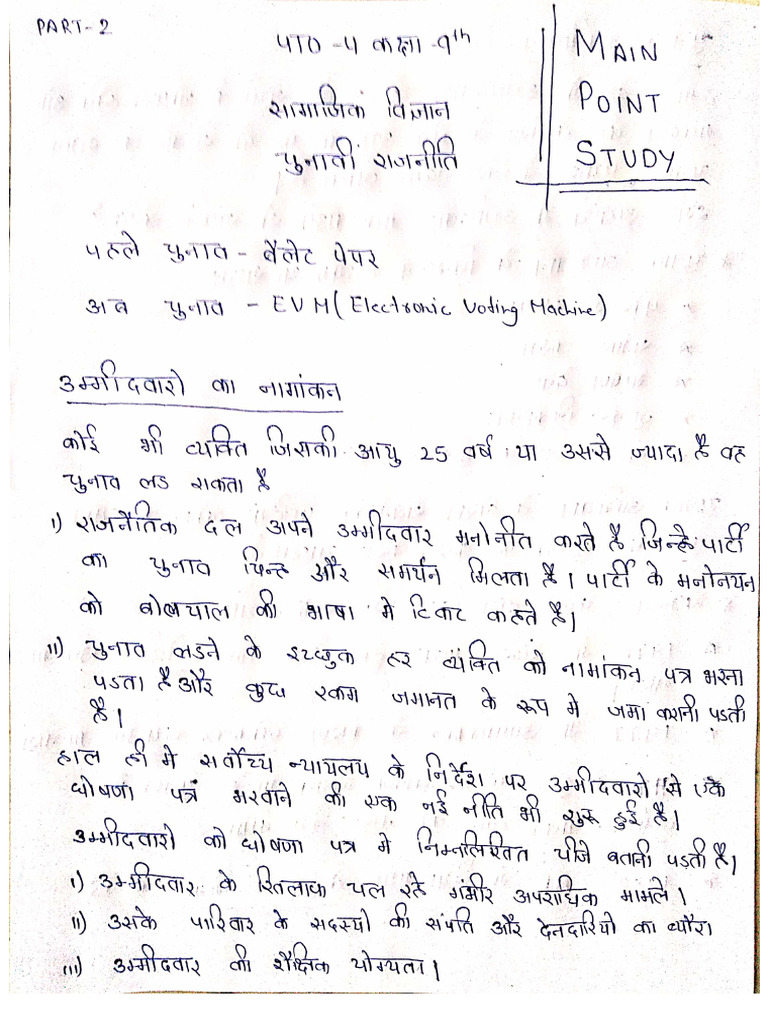 PART-2
पाठ-4 कक्षा-9th
MAIN
POINT
STUDY
सामाजिक विज्ञान
चुनावी राजनीति
पहले चुनाव - बैलेट पेपर
अब चुनाव - EVM (Electronic Voding Machine)
उम्मीदवारो का नामांकन
कोई भी व्यक्ति जिसकी आयु 25 वर्ष या उससे ज्यादा है वह
चुनाव लड सकता है
i) राजनैतिक दल अपने उम्मीदवार मनोनीत करते है जिन्हे पार्टी
का चुनाव चिन्ह और समर्थन मिलता है। पार्टी के मनोनयन
को बोलचाल की भाषा मे टिकट कहते है।
ii) चुनाव लडने के इच्छुक हर व्यक्ति को नामांकन पत्र भरना
पडता है और कुछ रकम जमानत के रूप मे जमा करानी पडती
है।
हाल ही मे सर्वोच्च न्यायलय के निर्देश पर उम्मीदवारो से एक
घोषणा पत्र भरवाने की एक नई नीति भी शुरू हुई है।
उम्मीदवारो को घोषणा पत्र मे निम्नलिखित चीजे बतानी पड़ती है।
i) उम्मीदवार के खिलाफ चल रहे गंभीर अपराधिक मामले।
ii) उसके परिवार के सदस्यो की संपति और देनदारियो का ब्यौरा
iii) उम्मीदवार की शैक्षिक योग्यता।